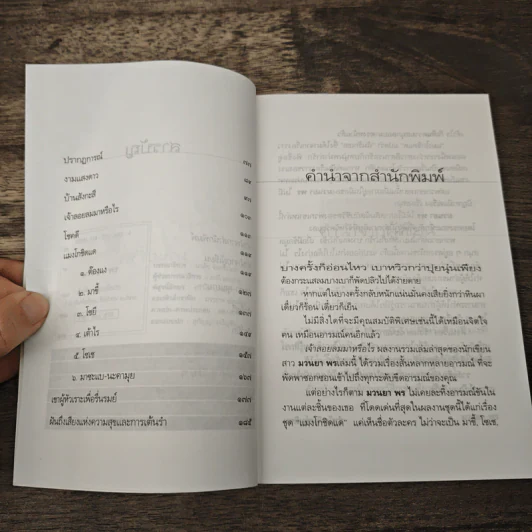 ปรากฏการณ์ ๗๓
งานแสดงดาว ๘๑
บ้านสังกะสี ๙๑
เจ้าลอยลมมาหรือไร ๑๐๑
โชคดี ๑๑๑
แมงโกซิตเต ๑๑๕
๑. ต้องแง ๑๑๙
๒. มาซี้ ๑๒๓
๓. โซยี
๔. เต้าไร ๑๔๕
๕. โซเซ ๑๕๓
๖. มาซะแบ-นะคามุย ๑๖๓
เขาผู้หัวเราะเพื่อรื่นรมย์ ๑๗๓
ฝันถึงเสียงแห่งความสุขและการเต้นรำ ๑๘๕
คำนำจากสำนักพิมพ์
บางครั้งก็อ่อนไหว เบาหวิวกว่าปุยนุ่นเพียง
ต้องกระแสลมบางเบาก็พัดปลิวไปได้ง่ายดาย
หากแต่ในบางครั้งกลับหนักแน่นมั่นคงเสียยิ่งกว่าหินผา
เดี๋ยวก็ร้อน เดี๋ยวก็เย็น
ไม่มีสิ่งใดที่จะมีคุณสมบัติพิเศษเช่นนี้ได้เหมือนจิตใจ
คน เหมือนอารมณ์คนอีกแล้ว
เจ้าลอยลมมาหรือไร ผลงานรวมเล่มล่าสุดของนักเขียน
สาว มวนยา พร เล่มนี้ ได้รวมเรื่องสั้นหลากหลายอารมณ์ ที่จะ
พัดพาซอกซอนเข้าไปถึงทุกระดับขีดอารมณ์ของคุณ
แต่อย่างไรก็ตาม มวนยา พร ไม่เคยละทิ้งอารมณ์ขันใน
งานแต่ละชิ้นของเธอ ที่โดดเด่นที่สุดในผลงานชุดนี้ได้แก่เรื่อง
ชุด "แมงโกซิตเต" แค่เห็นชื่อตัวละคร ไม่ว่าจะเป็น มาซี้, โซเซ,